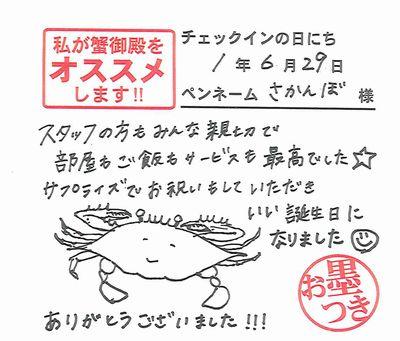 私が蟹御殿を
オススメ
します!!
チェックインの日にち
1年6月29日
ペンネーム さかんぼ 様
スタッフの方もみんな親切で
部屋もご飯もサービスも最高でした☆
サプライズでお祝いもしていただき
いい誕生日に
なりました☺
ありがとうございました!!!
お墨つき